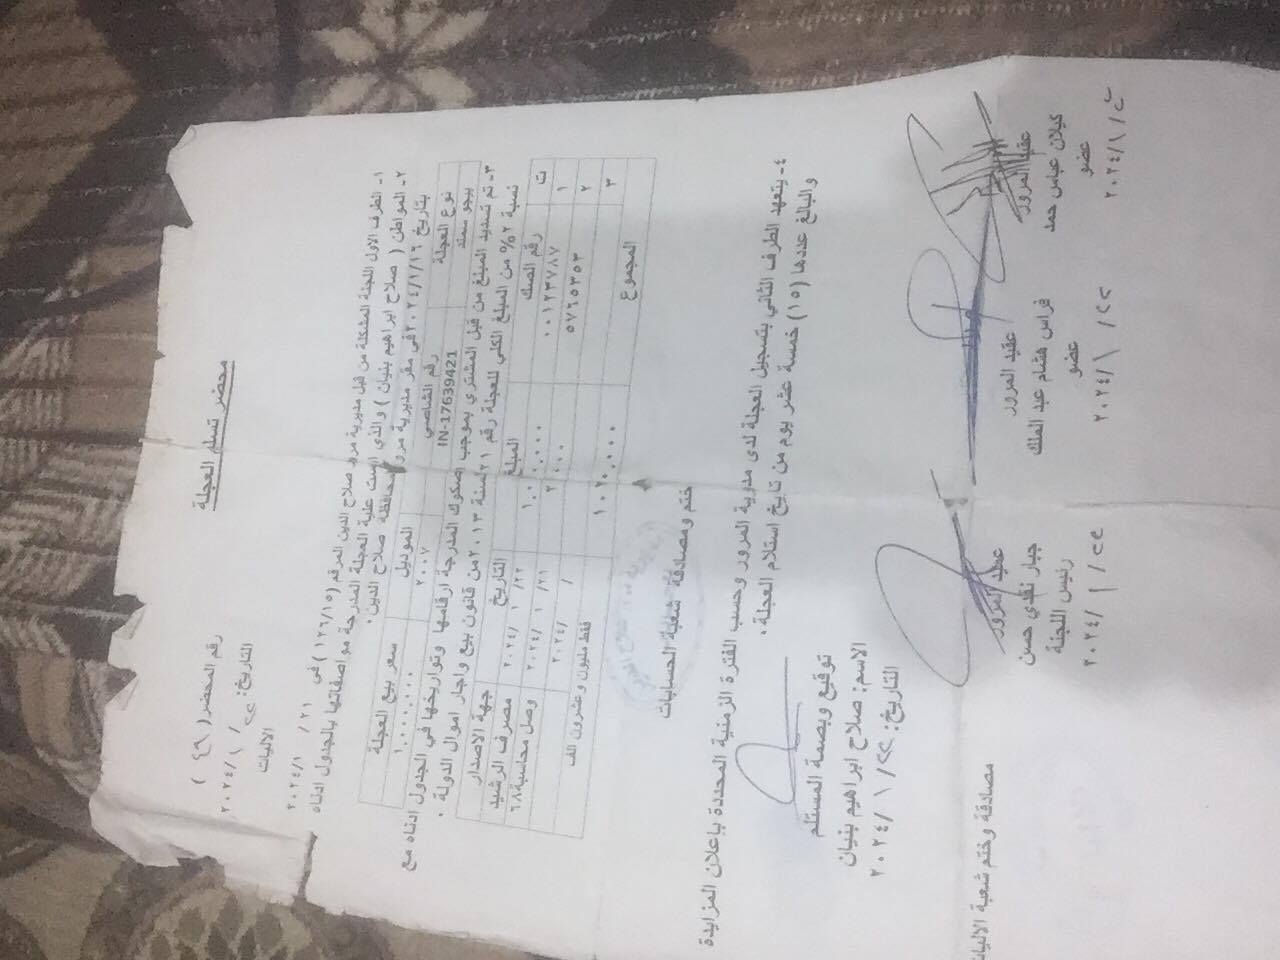 رقم المحضر( ٤٩ )
التاريخ: ٢٢ / ١ / ٢٠٢٤
الاليات
محضر تسلم العجلة
١- الطرف الاول اللجنة المشكلة من قبل مديرية مرور صلاح الدين المرقم (١٢٦/١٥) في ٢١ / ٢٠٢٤/١
٢- المواطن ( صلاح ابراهيم بنيان ) والذي رست علية العجلة المدرجة مواصفاتها بالجدول ادناه
بتاريخ ٢٠٢٤/١/١٦ في مقر مديرية مرور محافظة صلاح الدين.
نوع العجلة رقم الشاصي الموديل سعر بيع العجلة
بيجو سمند IN-17639421 ٢٠٠٧ ١,٠٠٠,٠٠٠
٣- تم تسديد المبلغ من قبل المشتري بموجب الصكوك المدرجة ارقامها وتواريخها في الجدول ادناه مع
نسبة ٢% من المبلغ الكلي للعجلة رقم ٢١ لسنة ٢٠١٣ من قانون بيع واجار اموال الدولة .
ت رقم الصك المبلغ التاريخ جهة الاصدار
١ ٠٠١٢٣٧٨٧ ١,٠٠٠,٠٠٠ ٢٢/ ١ /٢٠٢٤ مصرف الرشيد
٢ ٥٧٦٥٣٥٣ ٢٠,٠٠٠ ٢١/ ١ /٢٠٢٤ وصل محاسبة ٦٨
٣ / /٢٠٢٤
المجموع ١,٠٢٠,٠٠٠ فقط مليون وعشرون الف
ختم ومصادقة شعبة الحسابات
٤- يتعهد الطرف الثاني بتسجيل العجلة لدى مدورية المرور وحسب الفترة الزمنية المحددة بإعلان المزايدة
والبالغ عددها (١٥) خمسة عشر يوم من تايخ استلام العجلة .
توقيع وبصمة المستلم
الاسم: صلاح ابراهيم بنيان
التاريخ: ٢٢ / ١ / ٢٠٢٤
عقيد المرور
كيلان عباس حمد
عضو
٢٠٢٤/١/
عقيد المرور
فراس هشام عبد الملك
عضو
٢٢/ ١/ ٢٠٢٤
عميد المرور
جبار نقدي حسن
رئيس اللجنة
٢٢ / ١ /٢٠٢٤
مصادقة وختم شعبة الاليات